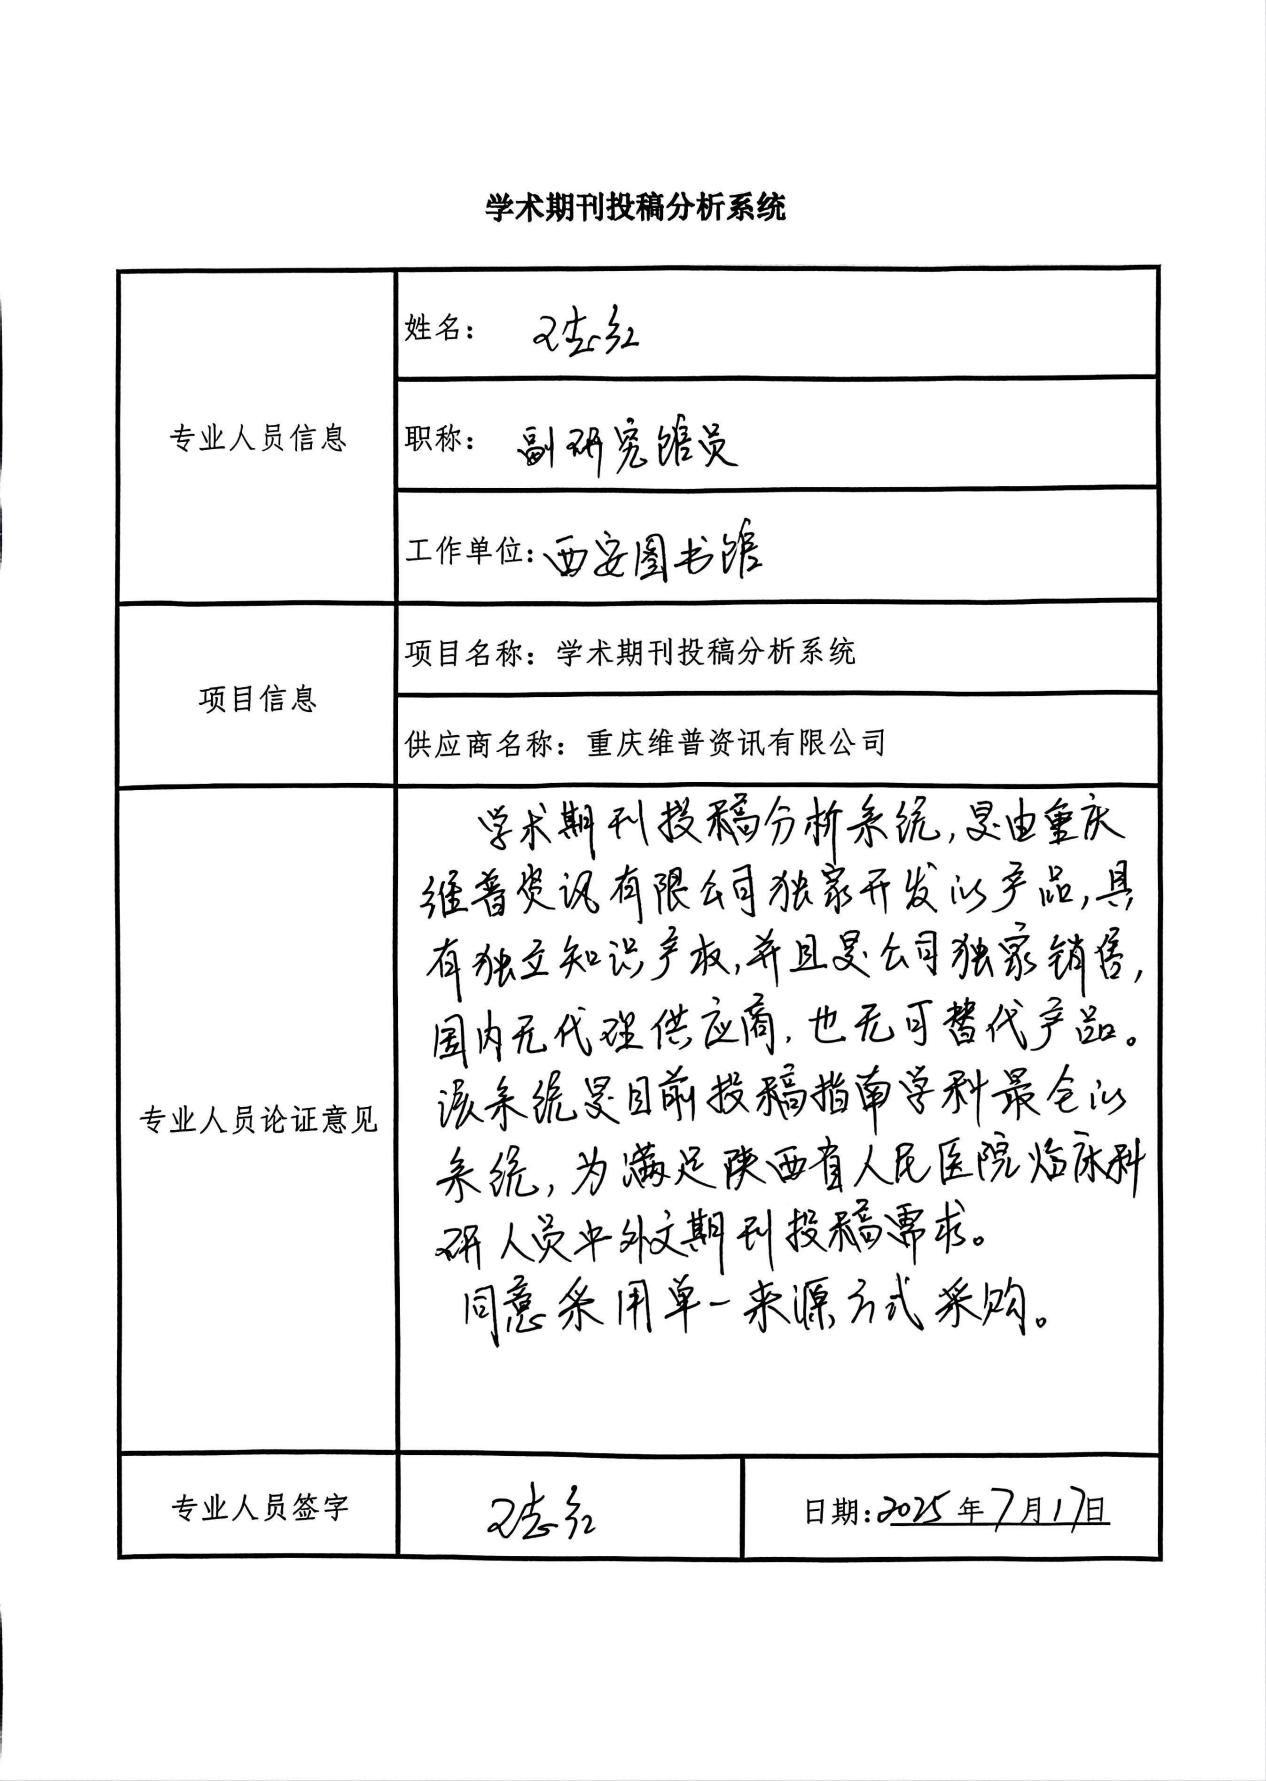 学术期刊投稿分析系统
专业人员信息
姓名: 王志红
职称: 副研究馆员
工作单位: 西安图书馆
项目信息
项目名称: 学术期刊投稿分析系统
供应商名称: 重庆维普资讯有限公司
专业人员论证意见
学术期刊投稿分析系统,是由重庆
维普资讯有限公司独家开发的产品,具
有独立知识产权,并且是公司独家销售,
国内无代理供应商,也无可替代产品。
该系统是目前投稿指南学科最全的
系统,为满足陕西省人民医院临床科
研人员中外文期刊投稿需求。
同意采用单一来源方式采购。
专业人员签字
王志红
日期:2025年7月17日